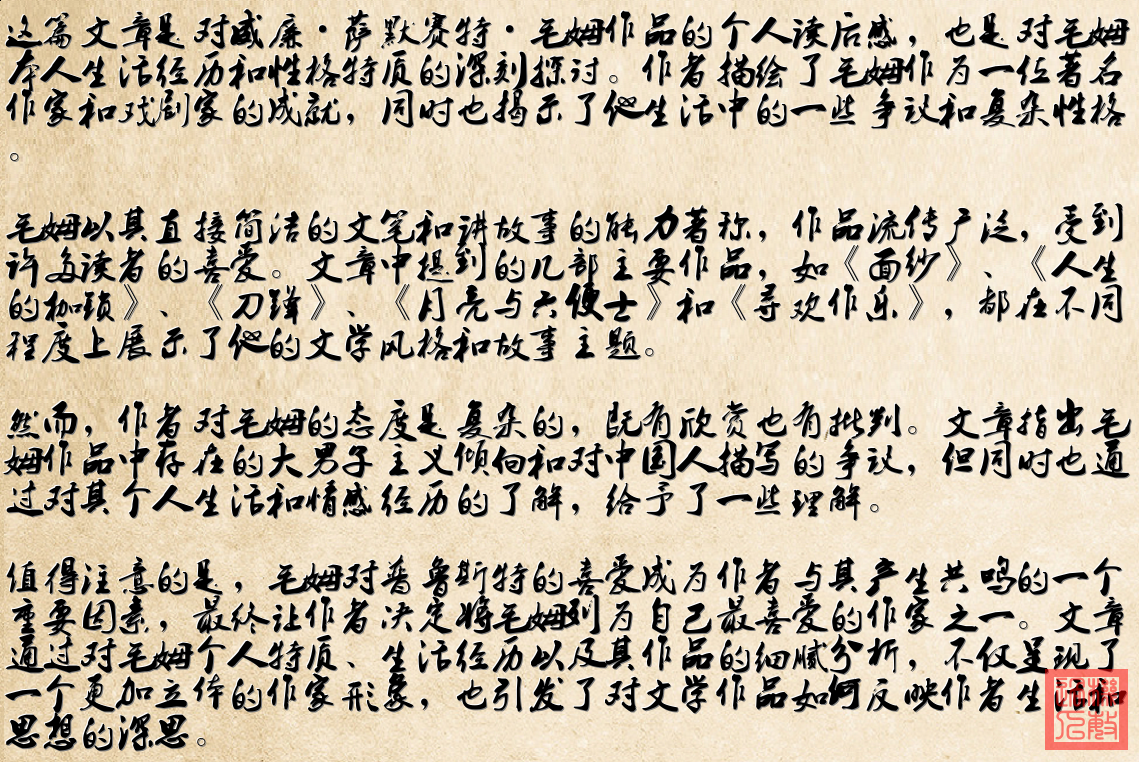 这篇文章是对威廉·萨默赛特·毛姆作品的个人读后感，也是对毛姆
本人生活经历和性格特质的深刻探讨。作者描绘了毛姆作为一位著名
作家和戏剧家的成就，同时也揭示了他生活中的一些争议和复杂性格
。
毛姆以其直接简洁的文笔和讲故事的能力著称，作品流传广泛，受到
许多读者的喜爱。文章中提到的几部主要作品，如《面纱》、《人生
的枷锁》、《刀锋》、《月亮与六便士》和《寻欢作乐》，都在不同
程度上展示了他的文学风格和故事主题。
然而，作者对毛姆的态度是复杂的，既有欣赏也有批判。文章指出毛
姆作品中存在的大男子主义倾向和对中国人描写的争议，但同时也通
过对其个人生活和情感经历的了解，给予了一些理解。
值得注意的是，毛姆对普鲁斯特的喜爱成为作者与其产生共鸣的一个
重要因素，最终让作者决定将毛姆列为自己最喜爱的作家之一。文章
通过对毛姆个人特质、生活经历以及其作品的细腻分析，不仅呈现了
一个更加立体的作家形象，也引发了对文学作品如何反映作者生活和
思想的深思。